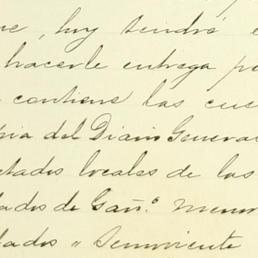 hoy tendré e
hacerle entrega p
contiene las cue
pia del Diario General
tados locales de los
tados de Gañ.º Meno
tados " Semoviente